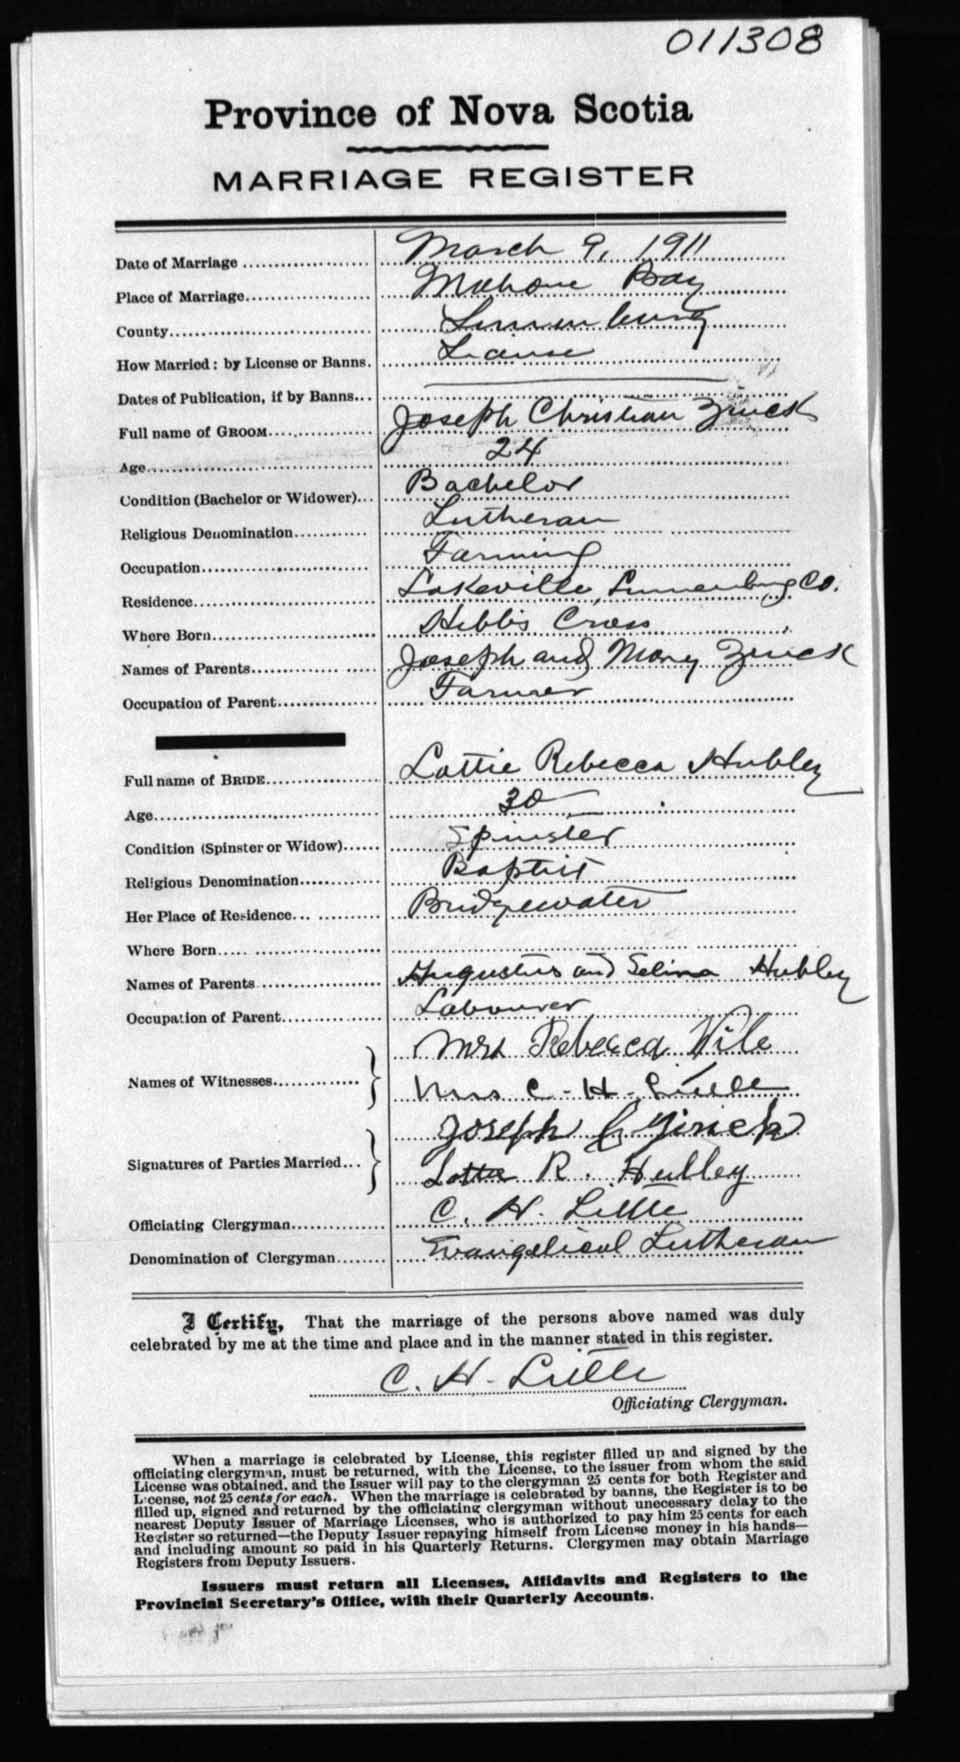 011308
Province of Nova Scotia
MARRIAGE REGISTER
Date of Marriage March 9, 1911
Place of Marriage Mahone Bay
County Lunenburg
How Married: by License or Banns. License
Dates of Publication, if by Banns
Full name of GROOM Joseph Christian Zinck
Age 24
Condition (Bachelor or Widower) Bachelor
Religious Denomination Lutheran
Occupation Farming
Residence Lakeville, Lunenburg Co.
Where Born Hebbs Cross
Names of Parents Joseph and Mary Zinck
Occupation of Parent Farmer
Full name of BRIDE Lottie Rebecca Hubley
Age 30
Condition (Spinster or Widow) Spinster
Religious Denomination Baptist
Her Place of Residence Bridgewater
Where Born
Names of Parents Augustus and Selina Hubley
Occupation of Parent Labourer
Names of Witnesses Mrs Rebecca Wile
Mrs C. H. Little
Signatures of Parties Married Joseph C Zinck
Lottie R. Hubley
Officiating Clergyman C. H. Little
Denomination of Clergyman Evangelical Lutheran
I Certify, That the marriage of the persons above named was duly
celebrated by me at the time and place and in the manner stated in this register.
C. H. Little
Officiating Clergyman.
When a marriage is celebrated by License, this register filled up and signed by the
officiating clergyman, must be returned, with the License, to the issuer from whom the said
License was obtained, and the Issuer will pay to the clergyman 25 cents for both Register and
License, not 25 cents for each. When the marriage is celebrated by banns, the Register is to be
filled up, signed and returned by the officiating clergyman without unnecessary delay to the
nearest Deputy Issuer of Marriage Licenses, who is authorized to pay him 25 cents for each
Register so returned—the Deputy Issuer repaying himself from License money in his hands—
and including amount so paid in his Quarterly Returns. Clergymen may obtain Marriage
Registers from Deputy Issuers.
Issuers must return all Licenses, Affidavits and Registers to the
Provincial Secretary's Office, with their Quarterly Accounts.